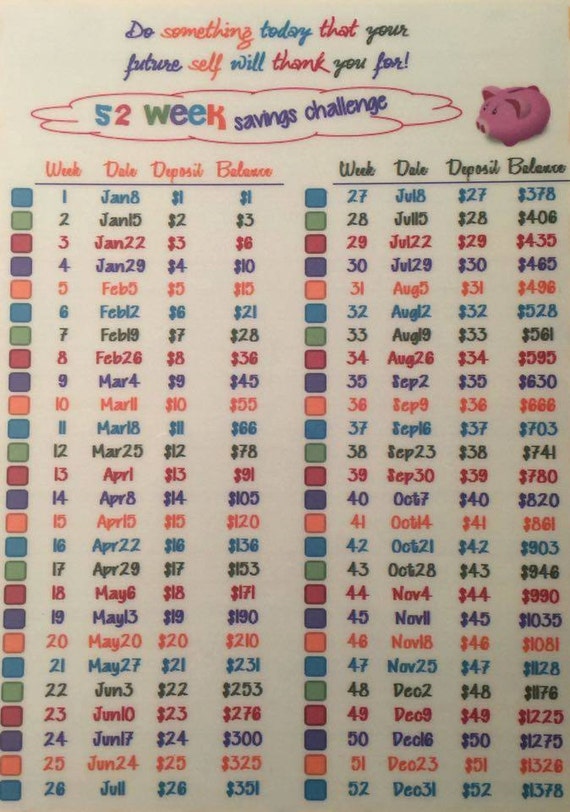 Do something today that your
future self will thank you for!
52 week savings challenge
Week Date Deposit Balance
1 Jan8 $1 $1
2 Jan15 $2 $3
3 Jan22 $3 $6
4 Jan29 $4 $10
5 Feb5 $5 $15
6 Feb12 $6 $21
7 Feb19 $7 $28
8 Feb26 $8 $36
9 Mar4 $9 $45
10 Mar11 $10 $55
11 Mar18 $11 $66
12 Mar25 $12 $78
13 Apr1 $13 $91
14 Apr8 $14 $105
15 Apr15 $15 $120
16 Apr22 $16 $136
17 Apr29 $17 $153
18 May6 $18 $171
19 May13 $19 $190
20 May20 $20 $210
21 May27 $21 $231
22 Jun3 $22 $253
23 Jun10 $23 $276
24 Jun17 $24 $300
25 Jun24 $25 $325
26 Jul1 $26 $351
Week Date Deposit Balance
27 Jul8 $27 $378
28 Jul15 $28 $406
29 Jul22 $29 $435
30 Jul29 $30 $465
31 Aug5 $31 $496
32 Aug12 $32 $528
33 Aug19 $33 $561
34 Aug26 $34 $595
35 Sep2 $35 $630
36 Sep9 $36 $666
37 Sep16 $37 $703
38 Sep23 $38 $741
39 Sep30 $39 $780
40 Oct7 $40 $820
41 Oct14 $41 $861
42 Oct21 $42 $903
43 Oct28 $43 $946
44 Nov4 $44 $990
45 Nov11 $45 $1035
46 Nov18 $46 $1081
47 Nov25 $47 $1128
48 Dec2 $48 $1176
49 Dec9 $49 $1225
50 Dec16 $50 $1275
51 Dec23 $51 $1326
52 Dec31 $52 $1378